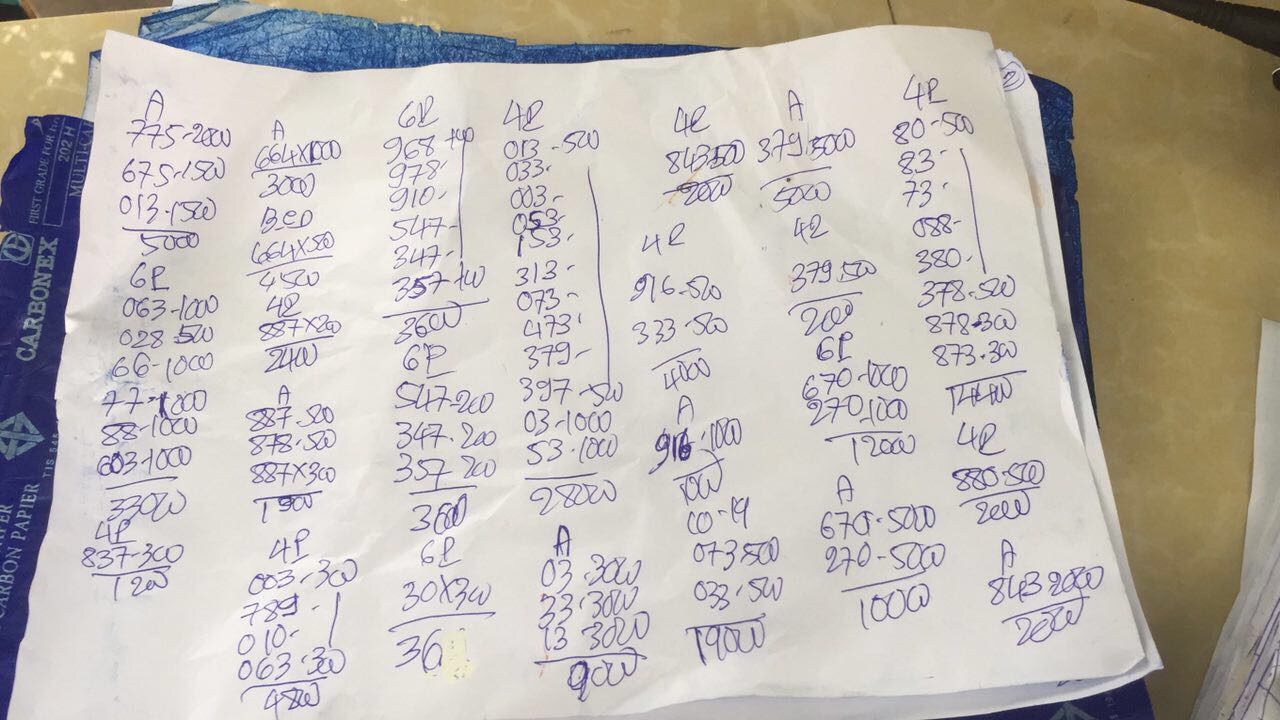 A
775-2000
675-1500
013-1500
5000
6P
063-1000
028-500
66-1000
77-1000
88-1000
603-1000
33000
4P
837-300
1200
A
664X1000
3000
664X500
4500
4P
887X200
2400
A
887-500
878-500
887X300
1900
4P
003-300
789-
010-
063-300
4800
6P
968
978-
910-
547-
347-
357
3600
6P
547-200
347-200
357-200
3600
6P
30X300
4P
013-500
033-
003-
053-
153-
313-
073-
473-
379-
397-500
03-1000
53-1000
28000
A
03-3000
33-3000
13-3000
9000
4P
843-500
2000
4P
916-500
333-500
4000
A
916-1000
1000
00-19
073-500
033-500
19000
A
379-5000
5000
4P
379-500
2000
6P
670-1000
270-1000
12000
A
670-5000
270-5000
10000
4P
80-500
83-
73-
088-
380-
378-500
878-300
873-300
14400
4P
880-500
2000
A
843-2000
2000
2
FIRST GRADE FOR
202 H
CARBONEX
TIS 545
CARBON PAPIER